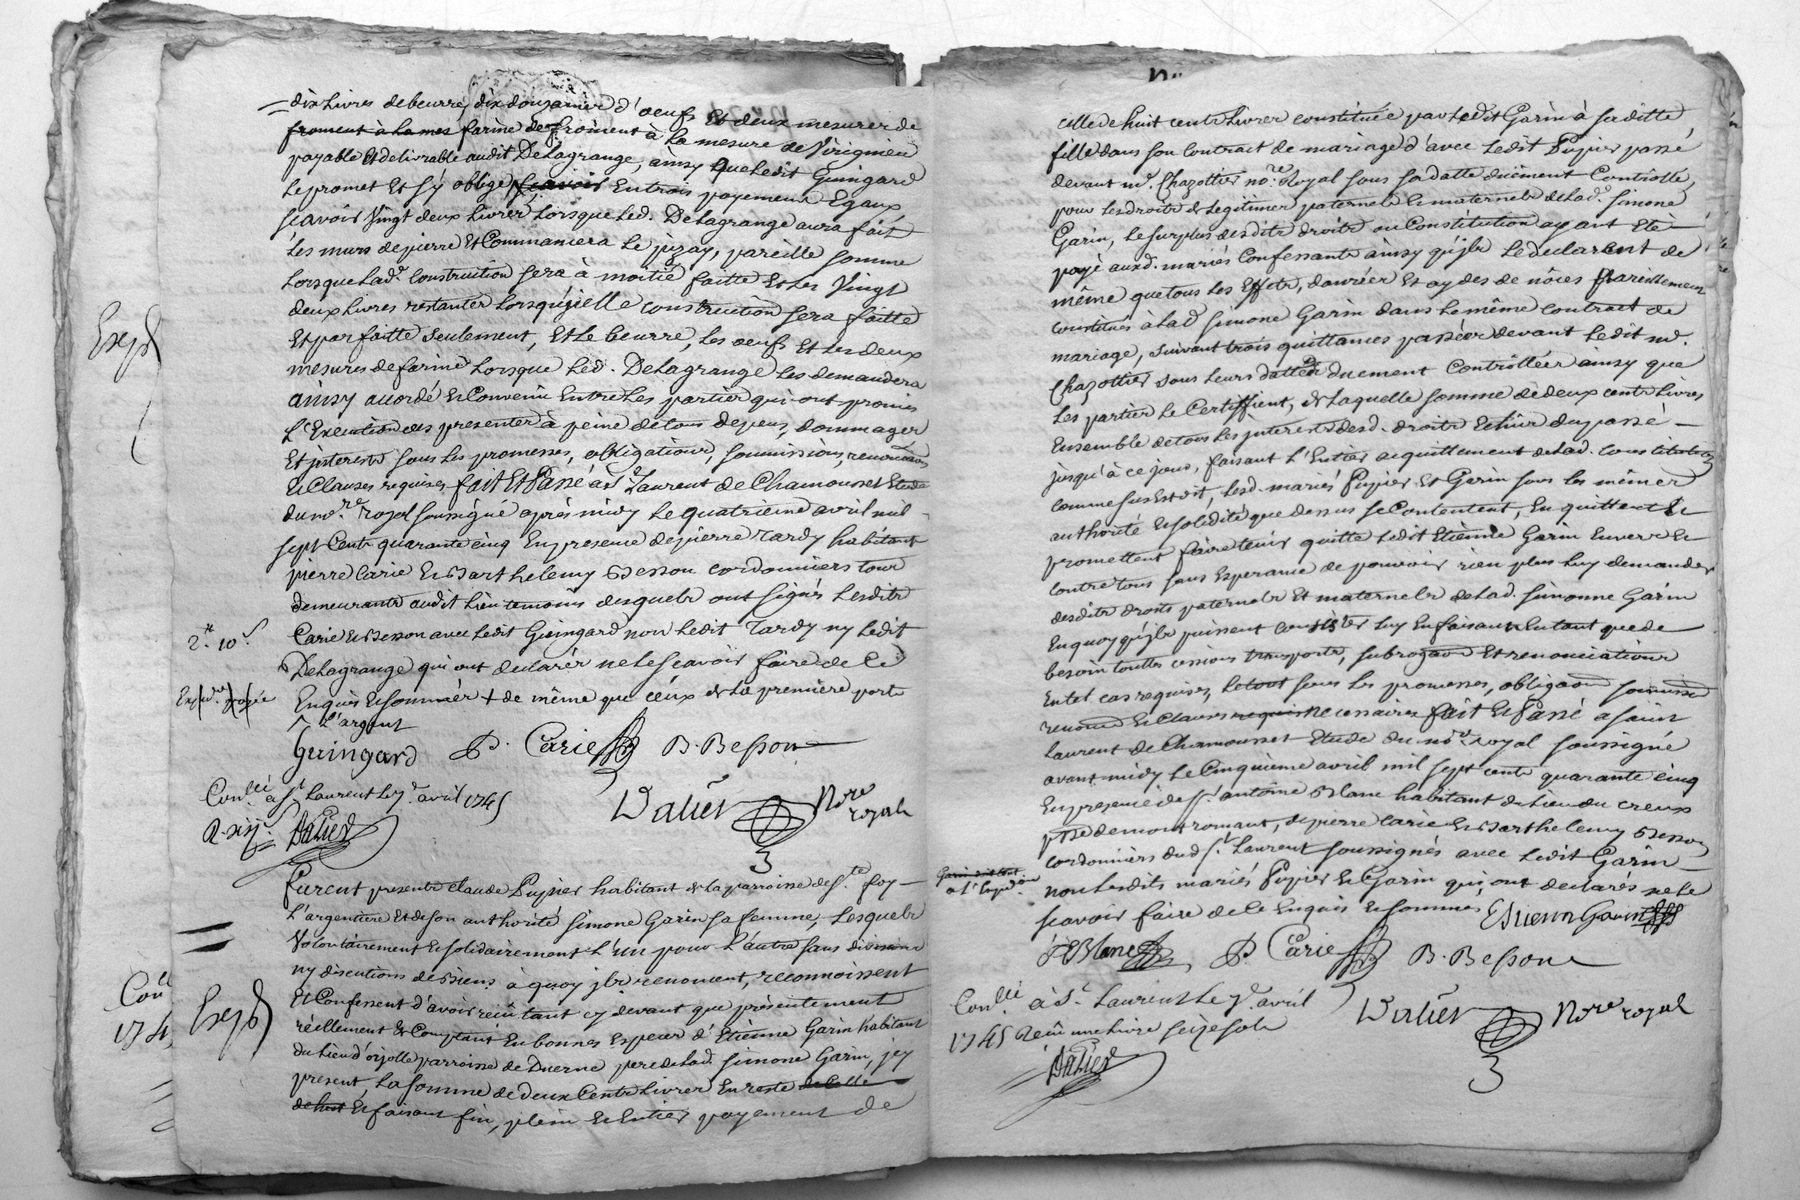 dix Livres de beurre, dix douzainer d'oeufs Et deux mesurer de
froment à la mes farine de froment à la mesure de Virignieu
payable Et delivrable audit Delagrange, ainsy que Ledit Guingard
Le promet Et s'y oblige scavoir En trois payemens Egaux
scavoir Vingt deux Livrer Lorsque Led. Delagrange aura fait
Les murs de pierre Et Commancera Le pizay, pareille somme
Lorsque Lad. Construction sera à moitié faitte Et Les Vingt
deux Livres restanter Lorsqu'jcelle construction sera faitte
Et parfaitte seulement, Et Le beurre, Les oeufs Et Les deux
mesures de farine Lorsque Led. Delagrange Les demandera
ainsy accordé Et Convenu Entre Les partier qui ont promis
L'Execution des presenter à peine de tous depens, dommager
Et jnterests sous Les promesses, obligations, soumissions, renonciations
Et Clauses requises fait Et Passé à St. Laurent de Chamousset Etude
du no.re royal soussigné après midy Le quatrieme avril mil
sept Cents quarante cinq En presence de pierre Tardy habitant
pierre Carie Et Barthelemy Besson cordonniers tous
demeurants audit Lieu temoins desquels ont signés Lesdits
Carie Et Besson avec Ledit Guingard non Ledit Tardy ny Ledit
Delagrange qui ont declarér ne Le scavoir faire de Ce
Enquis Et sommér + de même que céux de La premiere part
L'argent
2.tt 10.s
Guingard P. Carie B. Besson
Con.llé à St. Laurent Le 7.e avril 1745
R. xij s. Dalier
Dalier No.re royal
Furent presents Claude Pupier habitant de La parroisse de Ste. foy
L'argentiere Et de son authorité Simone Garin sa femme, Lesquels
Volontairement Et solidairement L'un pour L'autre sans division
ny discutions de Biens à quoy jls renoncent, reconnoissent
Et Confessent d'avoir reçu tant cy devant que présentement
réellement Et Comptant En bonnes Especes d'Etienne Garin habitant
du Lieu d'orjolle parroisse de Duerne pere de Lad. Simone Garin, jcy
present, La somme de deux Cents Livrer En reste de Celle
de huit Et faisant fin, plein Et Entier payement de
Con.llé
174
celle de huit cents Livrer constituée par Ledit Garin à sa ditte
fille dans son Contrat de mariage d'avec Ledit Pupier passé
devant m.e Chazottier no.re Royal sous sa datte duëment Controllé,
pour Les droits de Legitimer paternels Et maternels de Lad. Simone
Garin, Le surplus desdits droits ou Constitution ayant Eté
payé auxd. mariés Confessants ainsy qu'jls Le declarent de
même que tous Les Effets, danréer Et aydes de nôces pareillement
constitués à Lad Simone Garin dans Le même contract de
mariage, suivant trois quittances passéer devant Ledit m.e
Chazottier sous Leurs dattes duement Controlléer ainsy que
Les partier Le Certiffient, de Laquelle somme de deux cents Livres
Ensemble de tous Les jnterests desd. droits Echus du passé
jusqu'à ce jour, faisant L'Entier acquittement de Lad. Constitution
comme sus Est dit, Lesd. mariés Pupier Et Garin sous Les mêmes
authorité Et solidité que dessus se Contentent, En quittent Et
promettent faire tenir quitte Ledit Etienne Garin Envers Et
Contre tous sans Esperance de pouvoir rien plus Luy demander
desdits droits paternels Et maternels de Lad. Simonne Garin
En quoy qu'jls puissent consister Luy En faisant En tant que de
besoin touttes cessions transports, subrogaõn Et renonciations
En tel cas requises, Le tout sous Les promesses, obligaõn soumissõn
renonõn Et Clauses requis necessaires fait Et Passé à Saint
Laurent de Chamousset Etude du no.re royal soussigné
avant midy Le Cinquieme avril mil sept cents quarante cinq
En presence de Sr. antoine Blanc habitant du Lieu du creux
psse de montromant, de pierre Carie Et Barthelemy Besson
cordonniers dud St. Laurent soussignés avec Ledit Garin
non Lesdits mariés Pupier Et Garin qui ont declarés ne Le
scavoir faire de Ce Enquis Et sommes Etienn Garin
A Blanc P Carie B. Besson
Con.llé à St. Laurent Le 7.e avril
1745 Reçu une Livre seize sols
Dalier
Dalier No.re royal